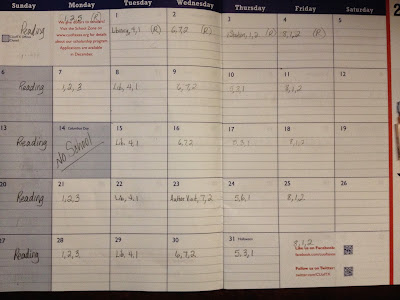 Sunday Monday Tuesday Wednesday Thursday Friday Saturday
2
Reading
(R)
Visit the School Zone on
about our scholarship program
Applications are available
in December.
1
4,1 (R)
2
6,7,2 (R)
3
1,2 (R)
4
8,1,2 (R)
5
6
Reading
7
1,2,3
8
Lib, 4,1
9
6,7,2
10
5,3,1
11
8,1,2
12
13
Reading
14 Columbus Day
No School
15
Lib, 4,1
16
6,7,2
17
5,3,1
18
8,1,2
19
20
Reading
21
1,2,3
22
Lib, 4,1
23
Author Visit, 7,2
24
5,6,1
25
8,1,2
26
27
Reading
28
1,2,3
29
Lib, 4,1
30
6,7,2
31 Halloween
5,3,1
8,1,2
Like us on Facebook:
Follow us on Twitter: